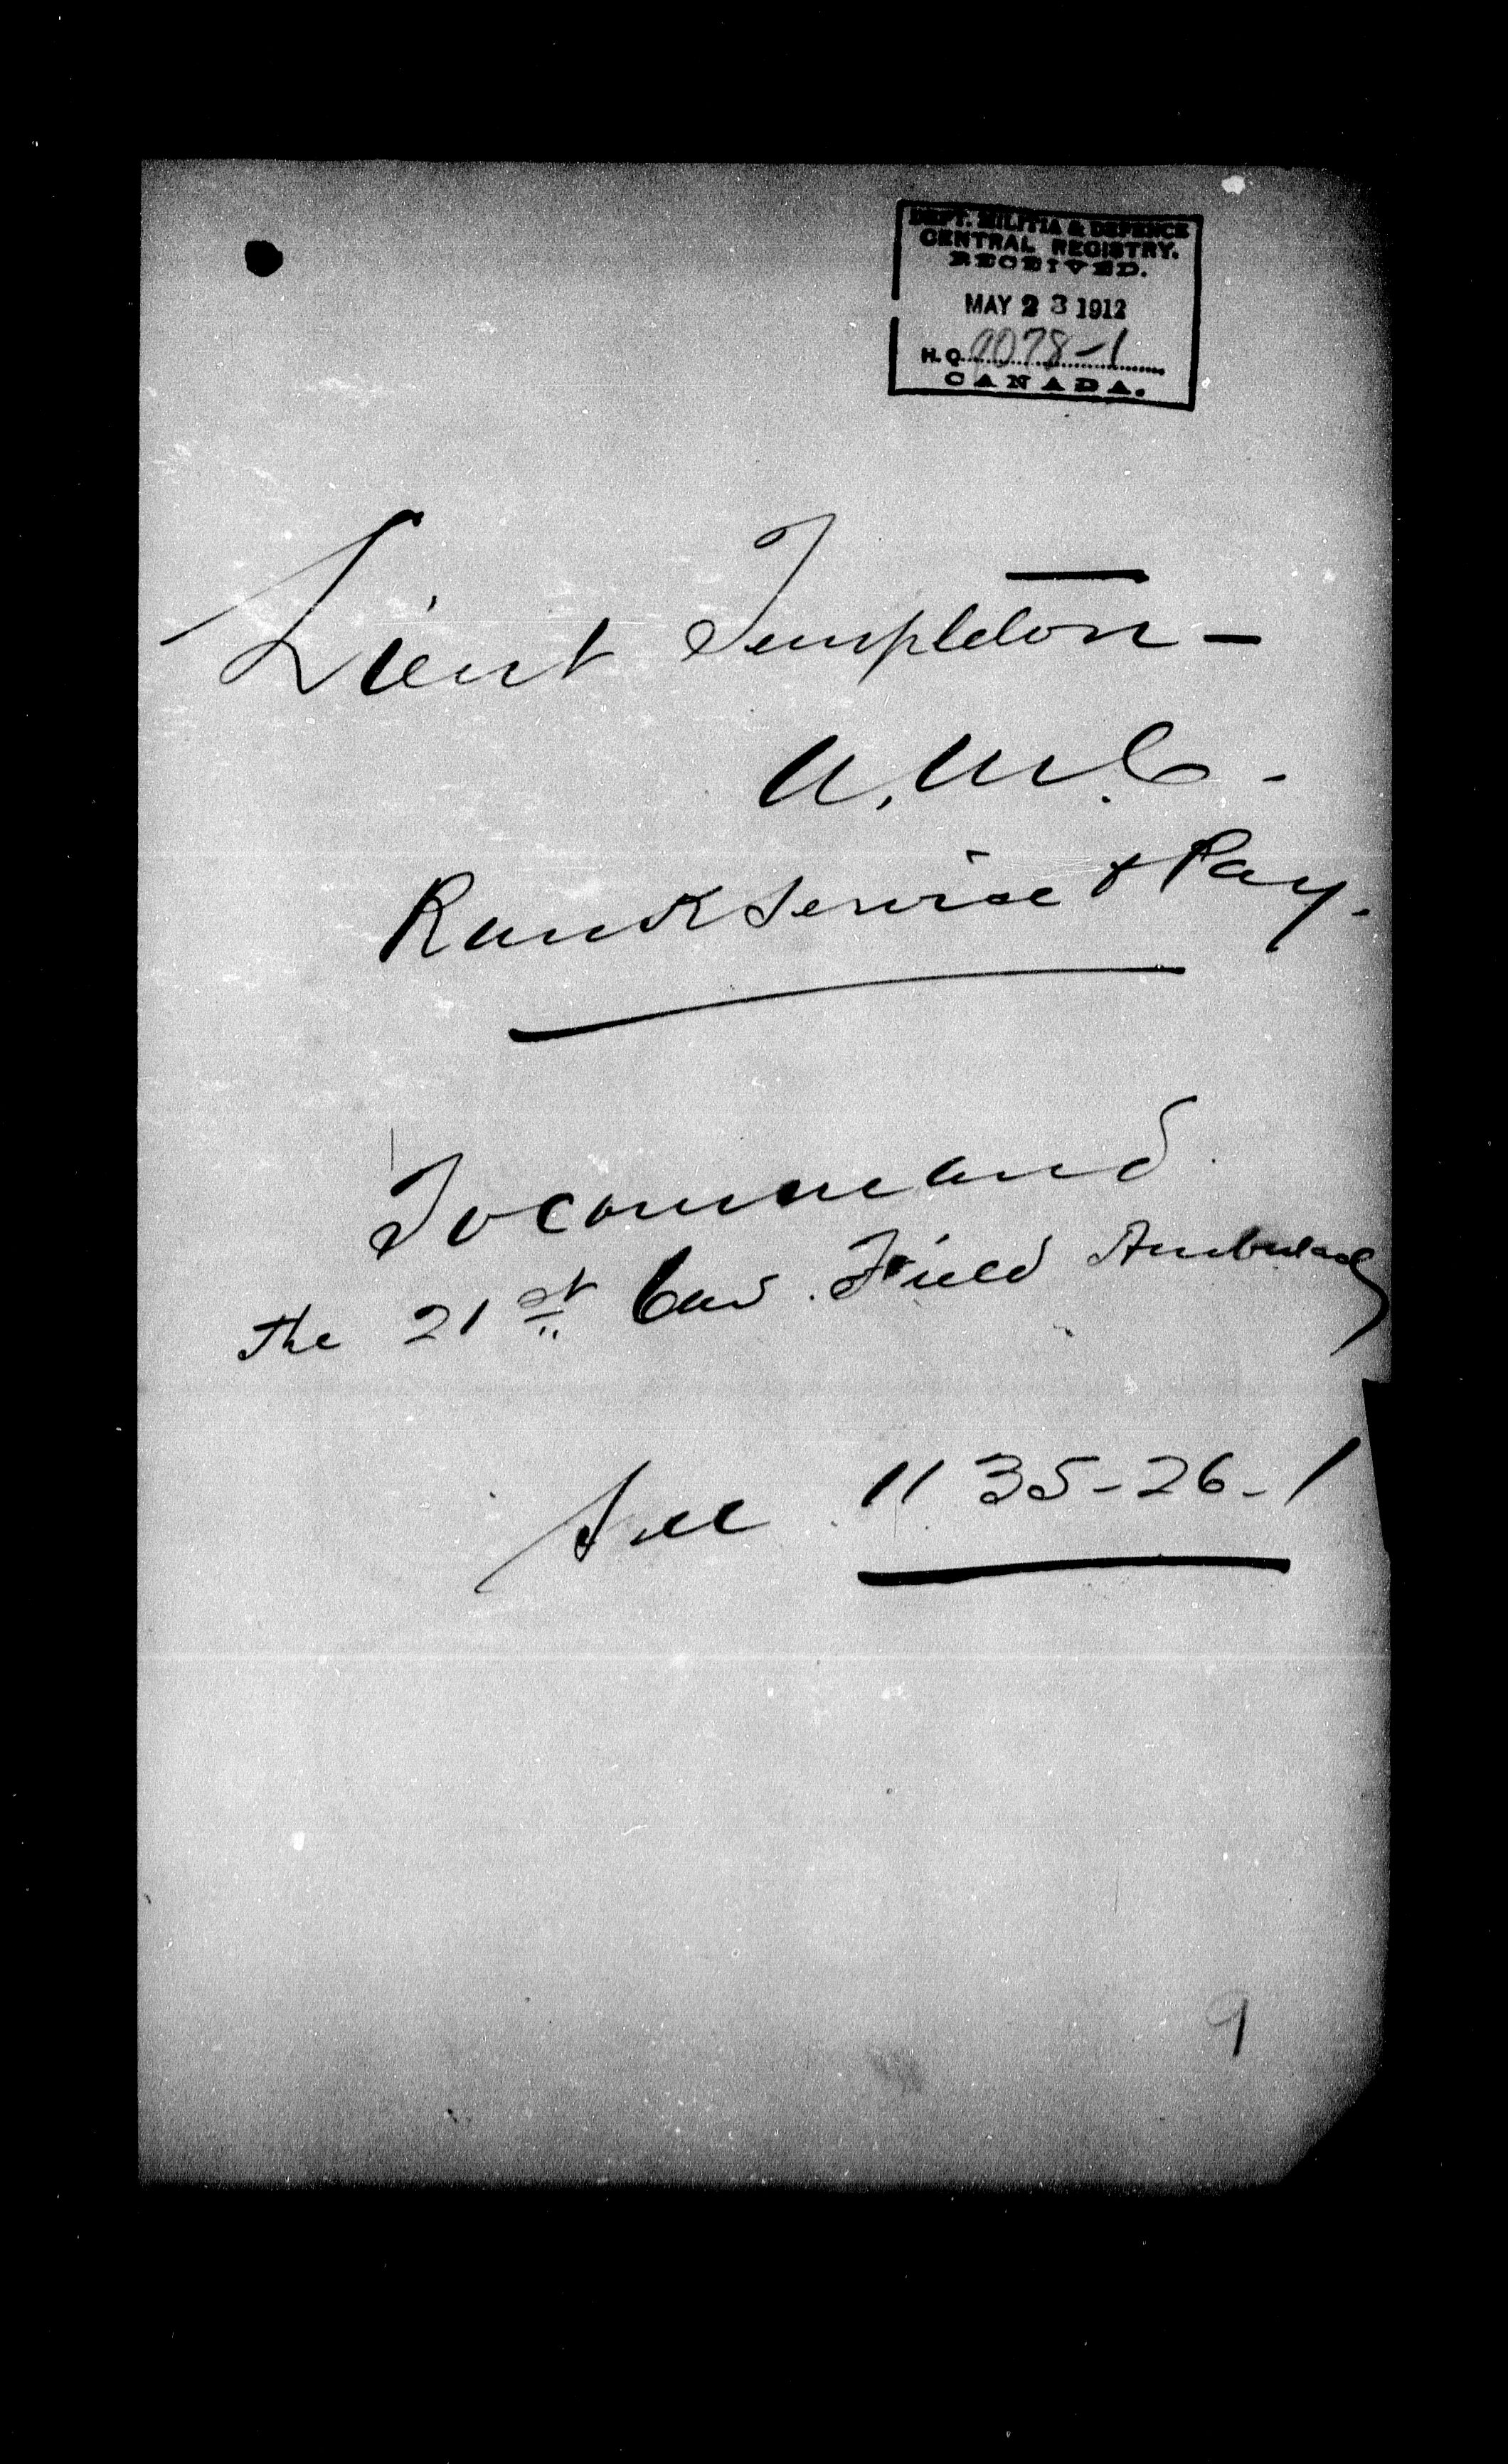 DEPT. MILITIA & DEFENCE
CENTRAL REGISTRY.
RECEIVED.
MAY 23 1912
H.Q. 9078-1
CANADA.
Lieut Templeton -
A.M.C. -
Rank Service & Pay.
To command
the 21st Cav. Field Ambulance
See 1135-26-1
9